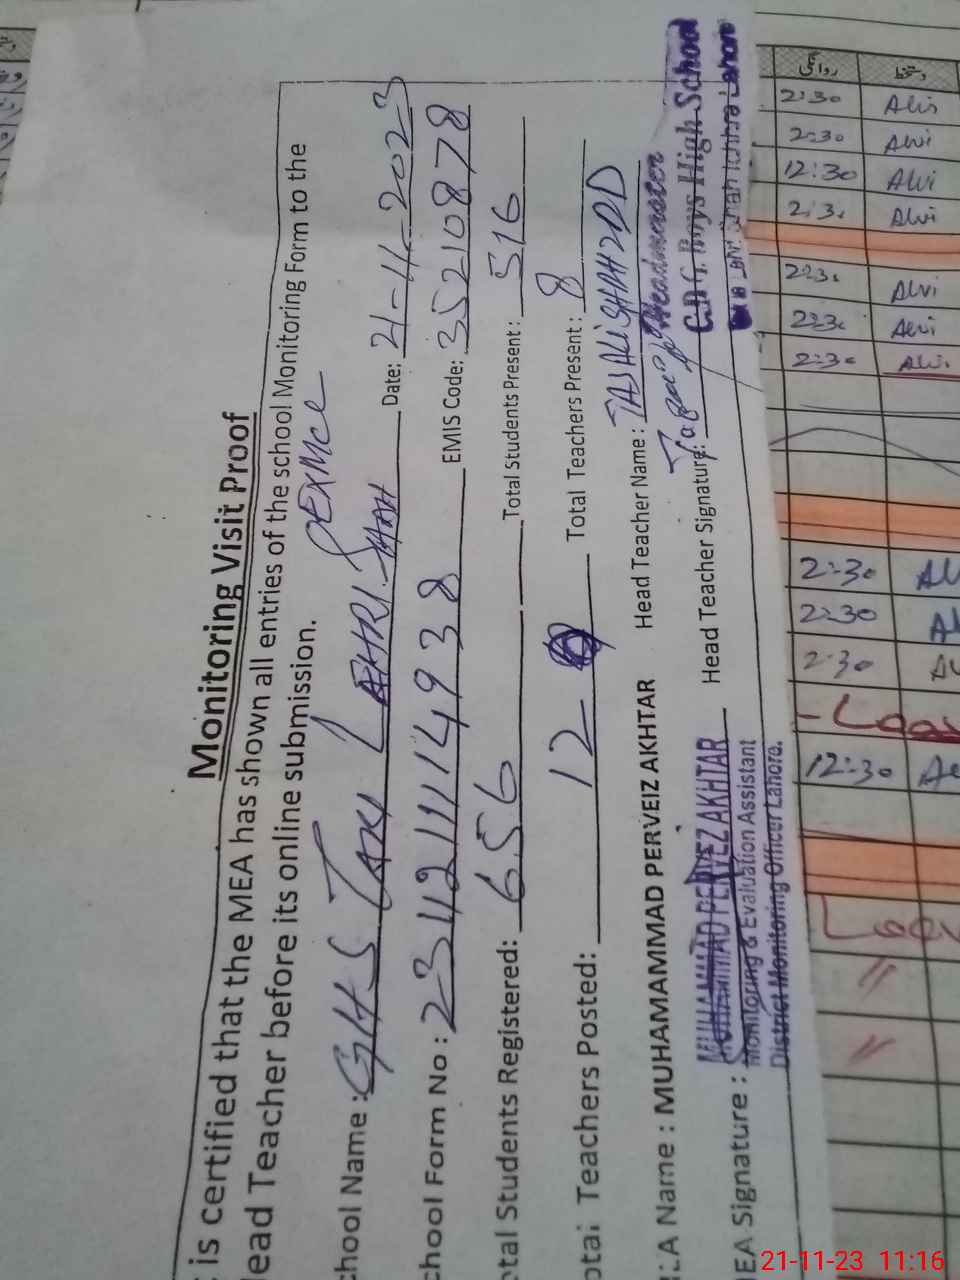 Monitoring Visit Proof
is certified that the MEA has shown all entries of the school Monitoring Form to the
lead Teacher before its online submission.
PEXMCE
chool Name : GHS TAKI LAHRI SHAH Date: 21-11-2023
chool Form No : 2342111 4938 EMIS Code: 35210878
otal Students Registered: 656 Total Students Present : 516
otal Teachers Posted: 12 Total Teachers Present : 8
EA Name : MUHAMAMMAD PERVEIZ AKHTAR Head Teacher Name : TAJ ALI SHAHZAD
EA Signature : Head Teacher Signature:
MUHAMMAD PERVEZ AKHTAR
Monitoring & Evaluation Assistant
District Monitoring Officer Lahore.
Headmaster
C.D.G. Boys High School
Shah Ichhra Lahore
روانگی دستخط
2:30 Alvi
2:30 Alvi
12:30 Alvi
2:30 Alvi
2:30 Alvi
2:30 Alvi
2:30 Alvi
2:30 Al
2:30 Al
2:30 Al
Leav
12:30 Al
Leav
"
"
21-11-23 11:16